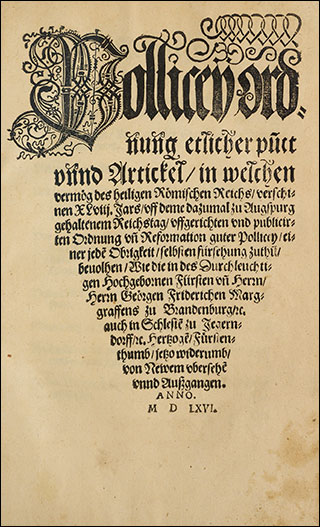 Pollicey ord⸗
nung etlicher pūct
vnnd Artickel / in welchen
vermög des heiligen Römischen Reichs / verschi⸗
nen XLviij. Jars / vff deme dazumal zu Augspurg
gehaltenem Reichstag / vffgerichten vnd publicir⸗
ten Ordnung vñ Reformation guter Pollicey / ei⸗
ner jedē Obrigkeit / selbsten fürsehung zuthū /
beuolhen / Wie die in des Durchleuchti⸗
gen Hochgebornen Fürsten vñ Herrn /
Herrn Geörgen Friderichen Marg⸗
graffens zu Brandenburg / ꝛc.
auch in Schlesiē zu Jegern⸗
dorff / ꝛc. Hertzogē / Fürsten⸗
thumb / jetzo widerumb /
von Newem vbersehē
vnnd Außgangen.
ANNO.
M D LXVI.